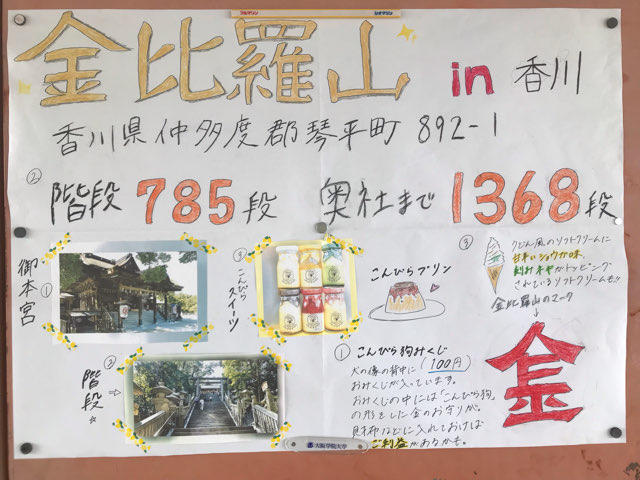 金比羅山 in 香川
香川県仲多度郡琴平町 892-1
② 階段 785段 奥社まで 1368段
御本宮 ①
③ こんぴらスイーツ
こんぴらプリン
③ うどん風のソフトクリームに
甘辛いショウガ味、
刻みネギがトッピング
されているソフトクリームも!!
金比羅山のマーク
↓
金
② 階段 ⇨ ☆
① こんぴら狗みくじ
犬の像の背中に (100円)
おみくじが入っています。
おみくじの中には「こんぴら狗」
の形をした金のお守りが。
財布などに入れておけば
ご利益があるかも。
大阪学院大学